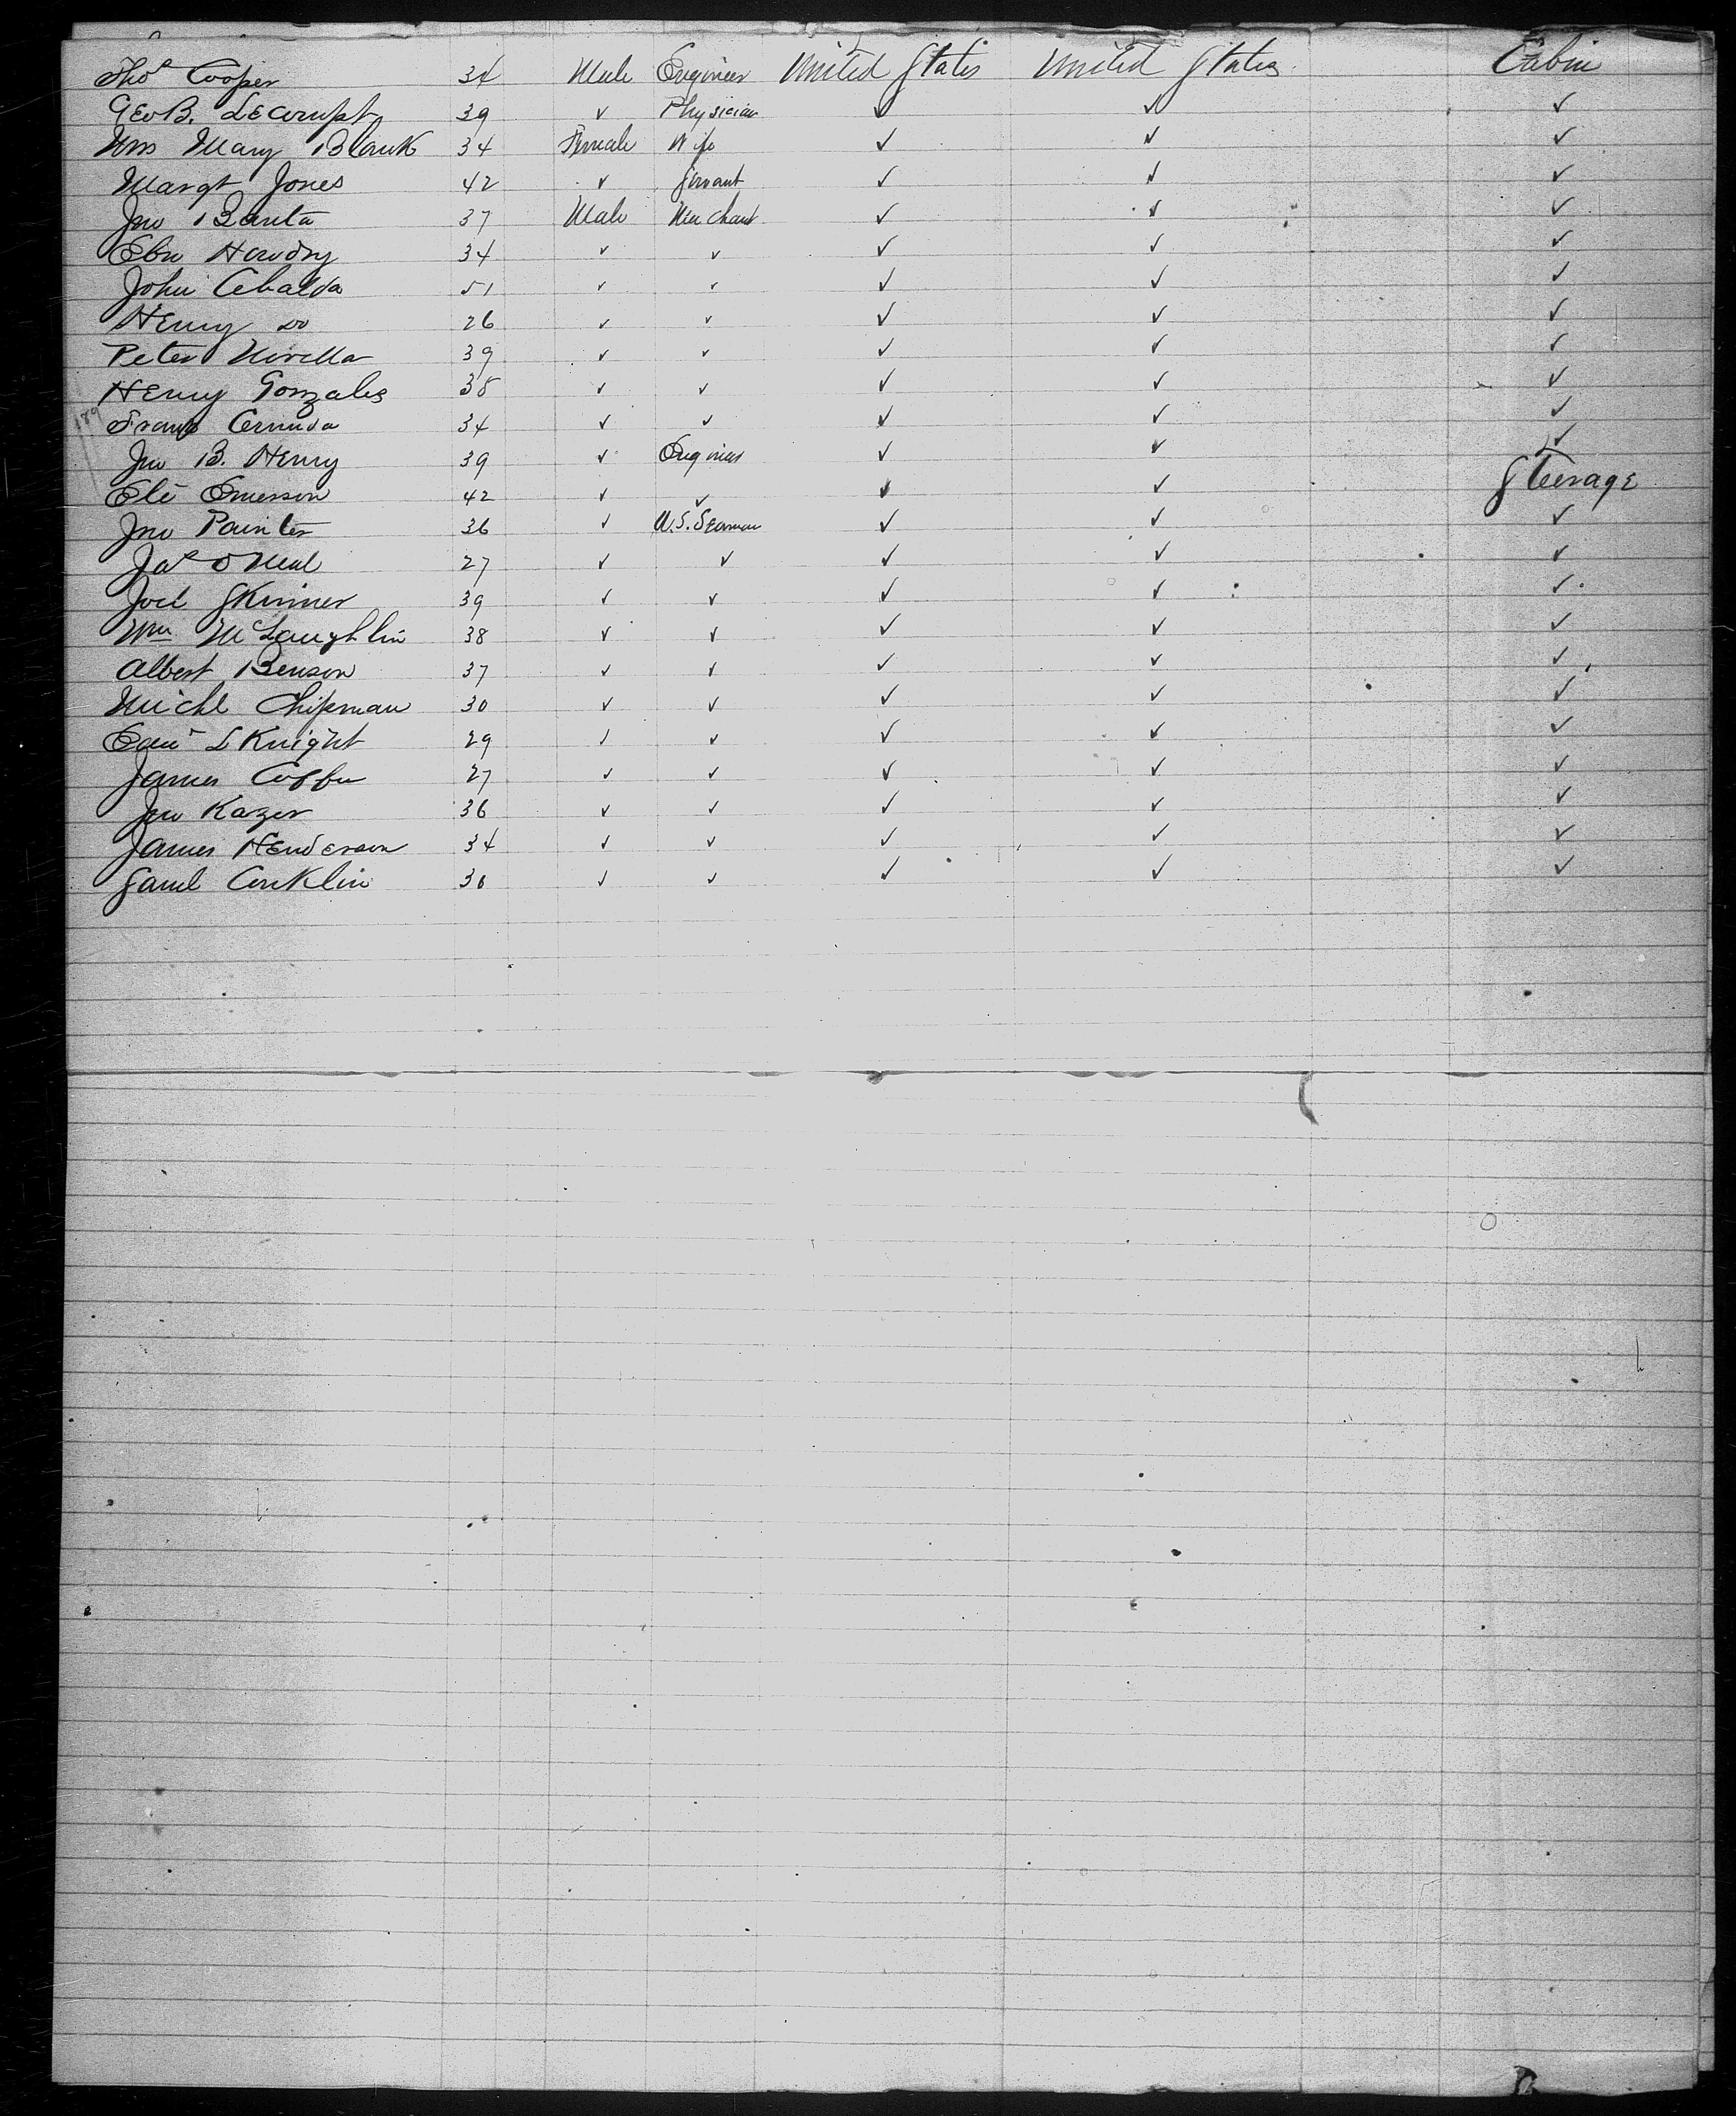 Thos Cooper 34 Male Engineer United States United States Cabin
Geo B. Lecompt 39 ✓ Physician ✓ ✓ ✓
Mrs Mary Blank 34 Female Wife ✓ ✓ ✓
Margt Jones 42 ✓ Servant ✓ ✓ ✓
Jno Banta 37 Male Merchant ✓ ✓ ✓
Ebn 34 ✓ ✓ ✓ ✓ ✓
John 51 ✓ ✓ ✓ ✓ ✓
Henry Do 26 ✓ ✓ ✓ ✓ ✓
Peter 39 ✓ ✓ ✓ ✓ ✓
Henry Gonzales 38 ✓ ✓ ✓ ✓ ✓
189
34 ✓ ✓ ✓ ✓ ✓
Jno B. Henry 39 ✓ Engineer ✓ ✓ ✓
Eli Emerson 42 ✓ ✓ ✓ ✓ Steerage
Jno Painter 36 ✓ U.S. Seaman ✓ ✓ ✓
Jas O Neal 27 ✓ ✓ ✓ ✓ ✓
Joel Skinner 39 ✓ ✓ ✓ ✓ ✓
Wm McLaughlin 38 ✓ ✓ ✓ ✓ ✓
Albert Benson 37 ✓ ✓ ✓ ✓ ✓
Michl Chipman 30 ✓ ✓ ✓ ✓ ✓
L Knight 29 ✓ ✓ ✓ ✓ ✓
James Coffin 27 ✓ ✓ ✓ ✓ ✓
Jno Kazer 36 ✓ ✓ ✓ ✓ ✓
James Henderson 34 ✓ ✓ ✓ ✓ ✓
Saml Conklin 36 ✓ ✓ ✓ ✓ ✓